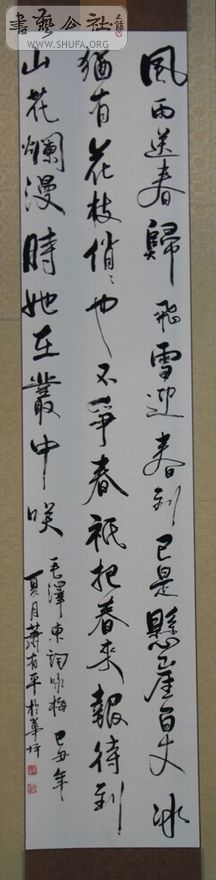 書藝公社
WWW.SHUFA.ORG
風雨送春歸飛雪迎春到已是懸崖百丈冰
猶有花枝俏俏也不爭春祇把春來報待到
山花爛漫時她在叢中咲
毛澤東詞咏梅 己丑年
夏月蕭有平於華坪